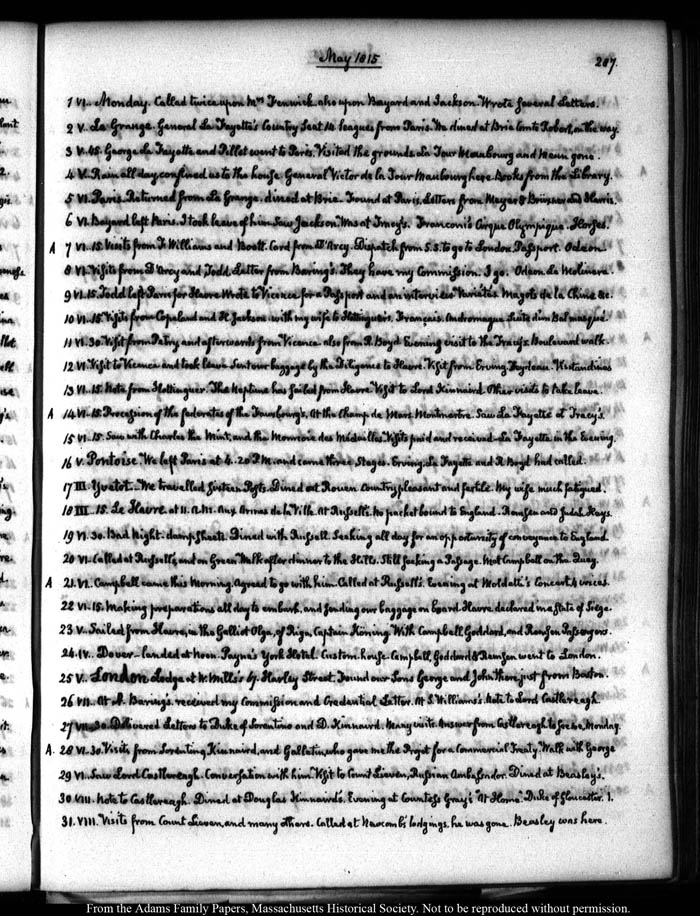 May 1815
207.
1 VI. Monday. Called twice upon Mrs Fenwick, also upon Bayard and Jackson. Wrote several Letters.
2 V. La Grange. General La Fayette's Country Seat 14 leagues from Paris. We dined at Brie Comte Robert, on the way.
3 V.45. George La Fayette and Pillet went to Paris. Visited the grounds. La Tour Maubourg and gone.
4 V. Rain all day, confined us to the house. General Victor de la Tour Maubourg here. Books from the Library.
5 VI. Paris. Returned from La Grange, dined at Brie. Found at Paris, Letters from Meyer & Bruxner and Harris.
6 VI. Bayard left Paris. I took leave of him. Saw Jackson. Was at Tracy's. Franconi's Cirque Olympique. Horses.
A 7 VI.15. Visits from S. Williams and Card from D'Arcy. Dispatch from S.S. to go to London. Passport. Odeon
8 VI. Visits from D'Arcy and Todd. Letter from Baring's. They have my Commission. I go. Odeon. La
9 VI.15. Todd left Paris for Havre. Wrote to Vicence for a Passport and an interview. Variétés. Magots de la Chine &c.
10 VI.15. Visits from Copeland and H. Jackson. with my wife to Hottinguers. Français. Andromaque. Suite d'un Bal masqué.
11 VI.30. Visit from Petry and afterwards from Vicence also from R. Boyd. Evening visit to the Tracy's. Boulevard walk.
12 VI. Visit to Vicence and took leave. Sent our baggage by the Diligence to Havre. Visit from Erving. Feydeau. Visitandines
13 VI.15. Note from Hottinguer. The Neptune has sailed from Havre. Visit to Lord Kinnaird. Other visits to take leave.
A 14 VI.15. Procession of the federates of the Fauxbourg's. At the Champ de Mars. Montmartre. Saw La Fayette at Tracy's.
15 VI.15. Saw with Charles the Mint, and the Monnoie des Médailles. Visits paid and received. La Fayette in the Evening.
16 V. Pontoise. We left Paris at 4.20 P.M. and came three Stages. Erving, La Fayette and R Boyd had called.
17 III. Yvetot. We travelled sixteen Posts. Dined at Rouen. Country pleasant and fertile. My wife much fatigued.
18 III.15. Le Havre, at 11. A.M. Aux Armes de la Ville. At Russell's. No packet bound to England. Remsen and Judah Hays.
19 VI.30. Bad Night. damp sheets. Dined with Russell. Seeking all day for an opportunity of conveyance to England.
20 VI. Called at Russell's, and on Green. Walk after dinner to the Hills. Still seeking a Passage. Met Campbell on the Quay.
A 21. VI. Campbell came this Morning. Agreed to go with him. Called at Russell's. Evening at Concert, 4 voices.
22 VI.15. Making preparations all day to embark, and sending our baggage on board. Havre declared in a State of Siege.
23 V. Sailed from Havre, in the Galliot Olga, of Riga, Captain Höning. With Campbell, Goddard, and Remsen Passengers.
24. IV. Dover—landed at Noon. Payne's York Hotel. Custom-house. Campbell, Goddard & Remsen went to London.
25 V. London. Lodge at W. Mills's 67. Harley Street. Found our Sons George and John there, just from Boston.
26 VII. At A. Baring's. received my Commission and Credential Letter. At S. Williams's. Note to Lord Castlereagh.
27 VII.30. Delivered Letters to Duke of Sorentino and D. Kinnaird. Many visits. Answer from Castlereagh to see me, Monday.
A. 28 VI.30. Visits from Sorentino, Kinnaird, and Gallatin, who gave me the Projet for a Commercial Treaty. Walk with George
29 VI. Saw Lord Castlereagh. Conversation with him. Visit to Count Lieven, Russian Ambassador. Dined at Beasley's.
30 VIII. Note to Castlereagh. Dined at Douglas Kinnaird's. Evening at Countess Grey's "At Home." Duke of Gloucester. 1.
31. VIII. Visits from Count Lieven, and many others. Called at Newcomb's lodgings, he was gone. Beasley was here.
From the Adams Family Papers, Massachusetts Historical Society. Not to be reproduced without permission.